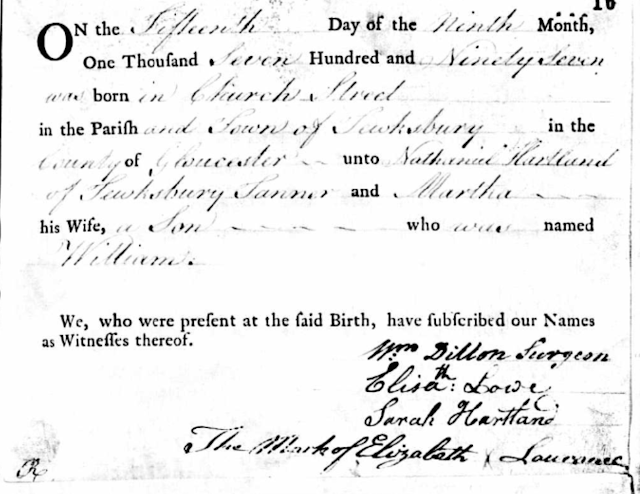 16
ON the Fifteenth Day of the Ninth Month,
One Thousand Seven Hundred and Ninety Seven
was born in Church Street
in the Parish and Town of Tewksbury in the
County of Gloucester unto Nathaniel Hartland
of Tewksbury Tanner and Martha
his Wife, a Son who was named
William.
We, who were present at the said Birth, have subscribed our Names
as Witnesses thereof.
Wm Dillon Surgeon
Elisath: Lowe
Sarah Hartland
The Mark of Elizabeth X Lawrance